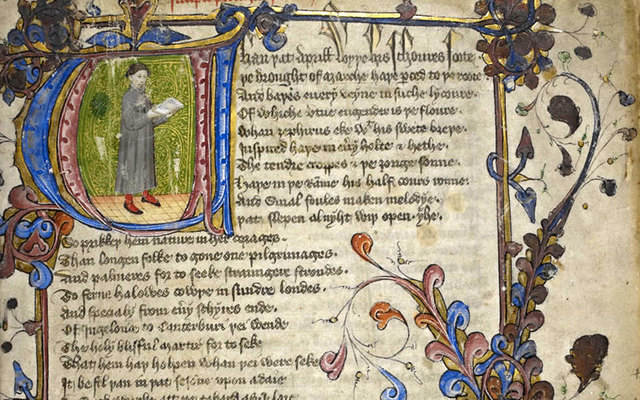 Whan þat aprill wyþ his schoures sote
þe drought of marche haþe perced to þe roote
And baþed euery veyne in suche lycoure
Of whiche vertue engendred is þe floure
Whan zephirus eke wt his swete breþe
Inspired haþe in eu̾y holte & heþe
The tendre croppes & þe ȝonge sonne
Haþe in þe Ram̄e his half cours ronne
And Smal foules maken melodye
þat slepen al nyht wiþ open yhe
So prikkeþ hem nature in her corages
Than longen folke to gone one pilgrimages
And palmeres for to seeke straungere strondes
To ferne halowes cowþe in sundre londes
And specialy from eu̾y schyres ende
Of Ingelond to Canterbury þei wende
The holy blisful martir for to seke
That hem haþ holpen whan þei were seke
It befel þan in þat sesone vpon a daie